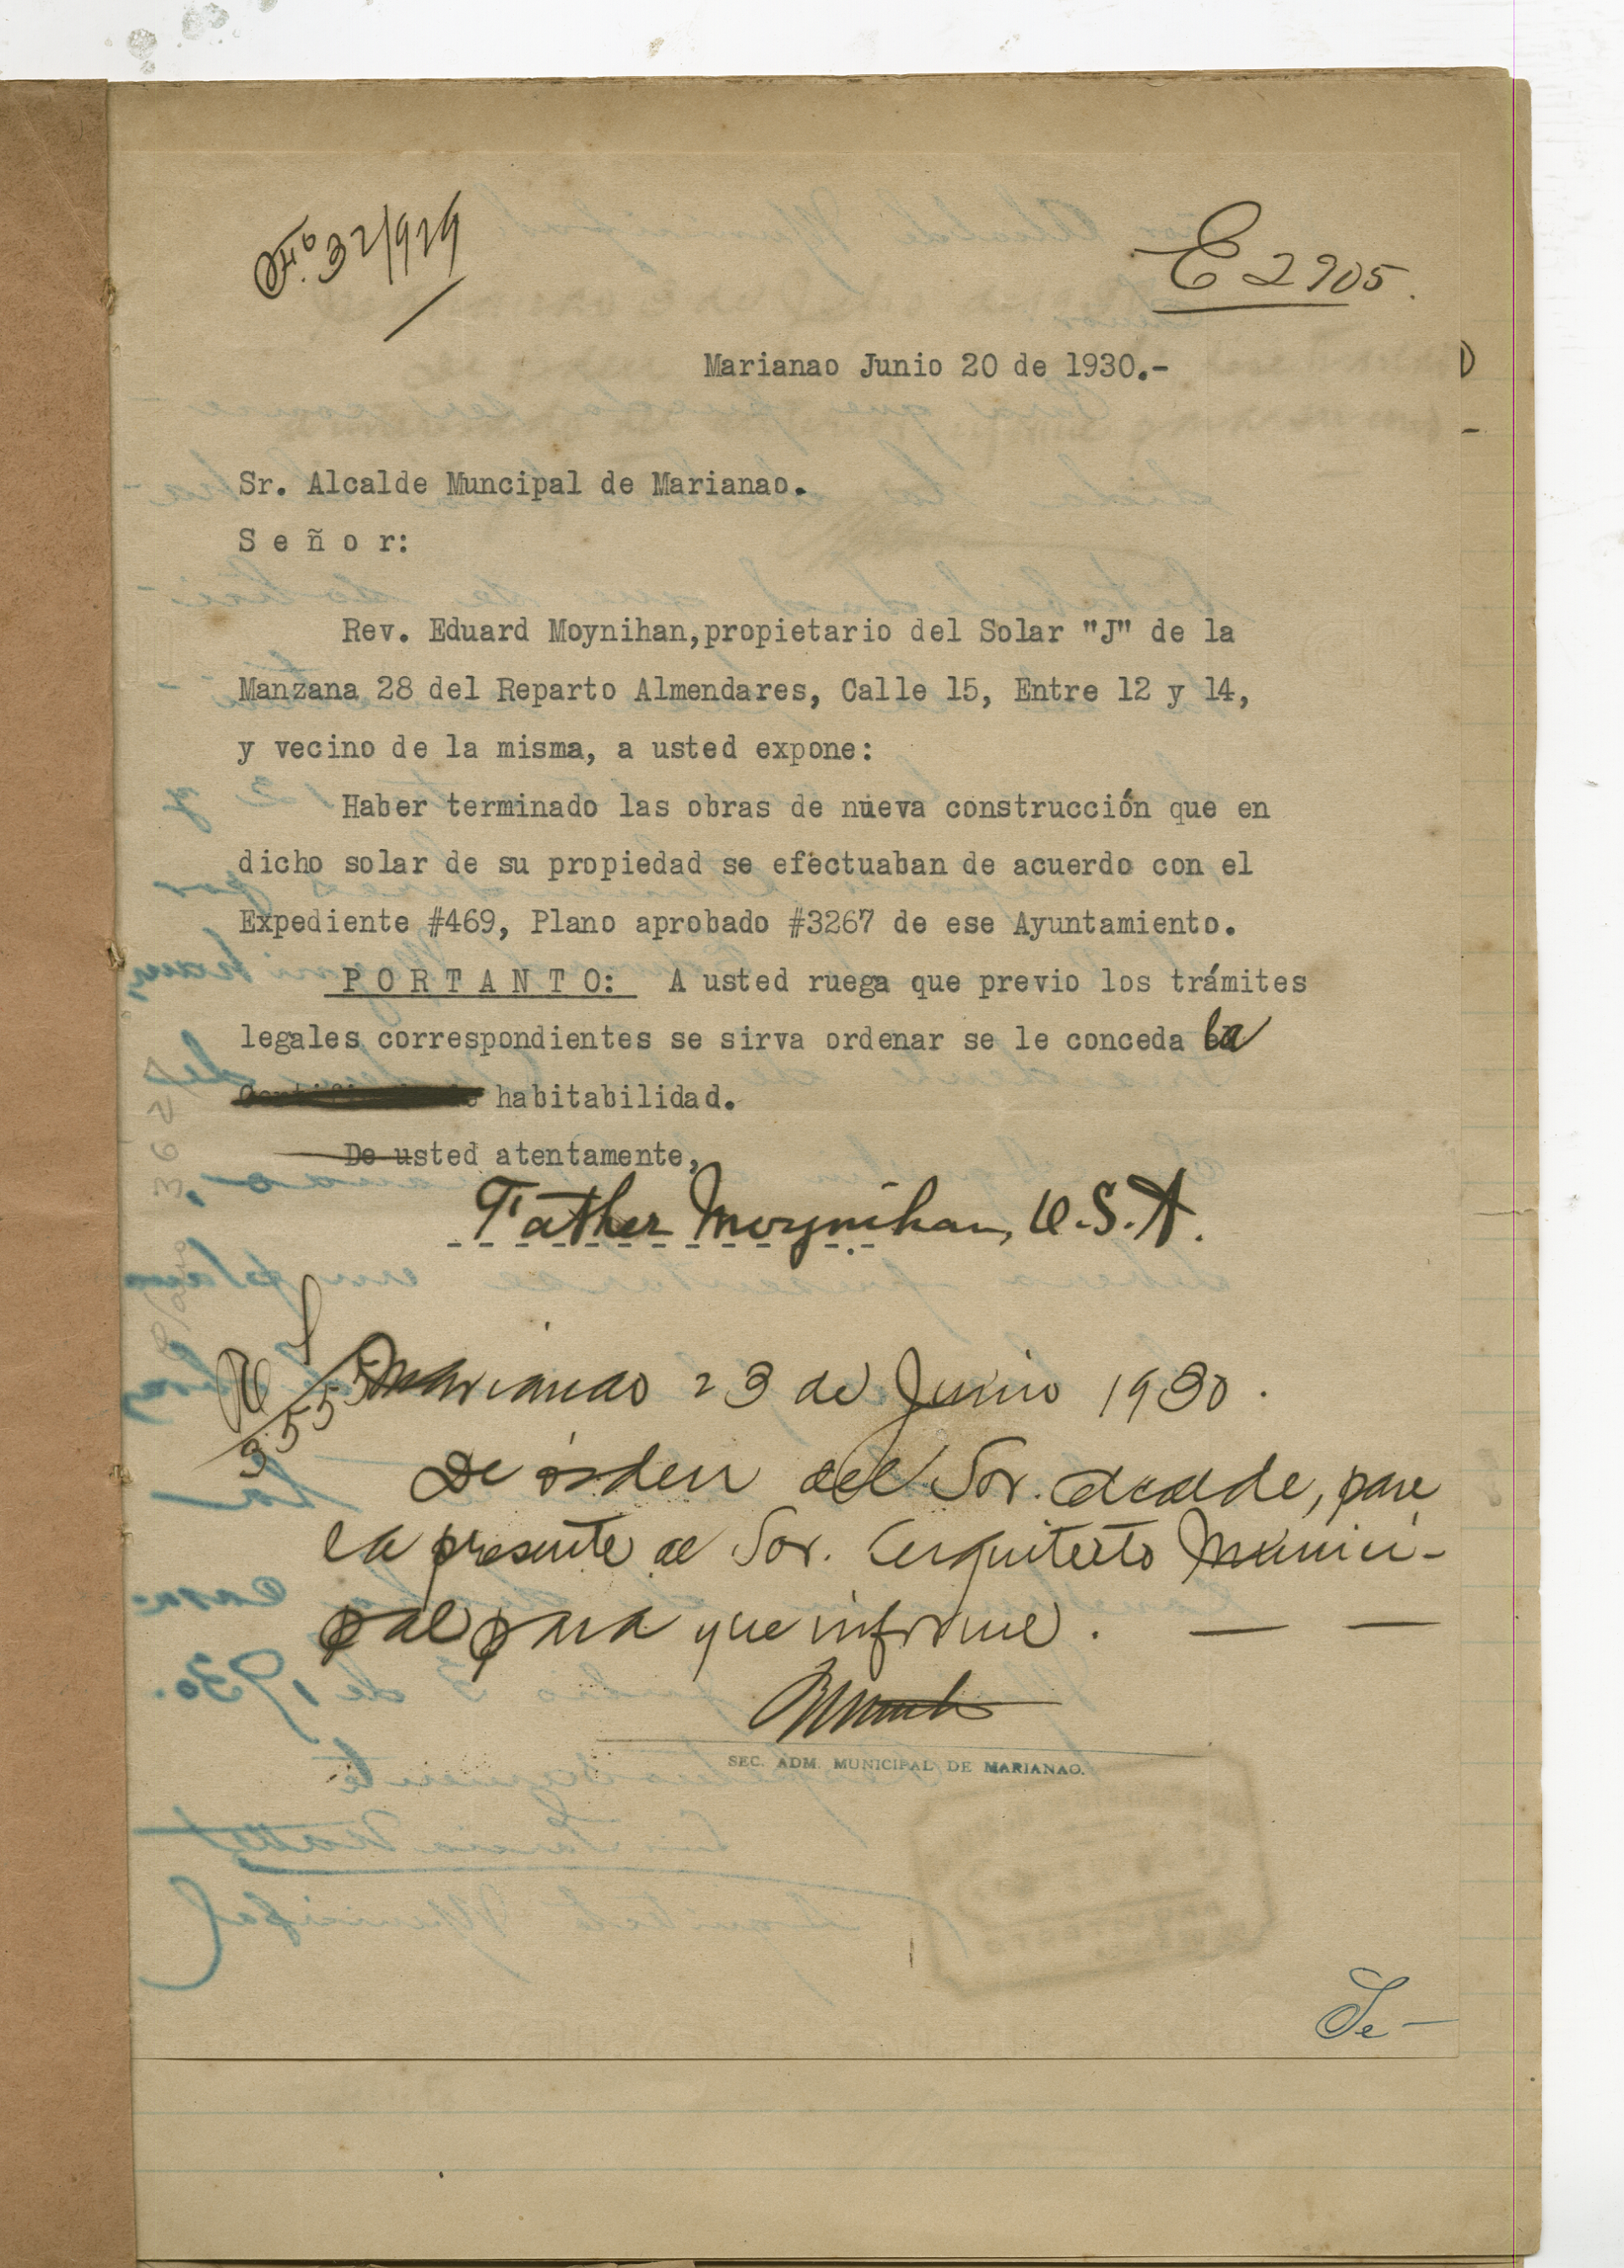 Nº 32/929
E 2905.
Marianao Junio 20 de 1930.-
Sr. Alcalde Muncipal de Marianao.
S e ñ o r:
Rev. Eduard Moynihan,propietario del Solar "J" de la
Manzana 28 del Reparto Almendares, Calle 15, Entre 12 y 14,
y vecino de la misma, a usted expone:
Haber terminado las obras de nueva construcción que en
dicho solar de su propiedad se efectuaban de acuerdo con el
Expediente #469, Plano aprobado #3267 de ese Ayuntamiento.
P O R T A N T O: A usted ruega que previo los trámites
legales correspondientes se sirva ordenar se le conceda la
habitabilidad.
De usted atentamente,
Father Moynihan, O.S.A.
3555
Marianao 23 de Junio 1930.
De orden del Sor. Alcalde, pase
la presente al Sor. Arquitecto Munici-
pal para que informe. — —
SEC. ADM. MUNICIPAL DE MARIANAO.
Se-